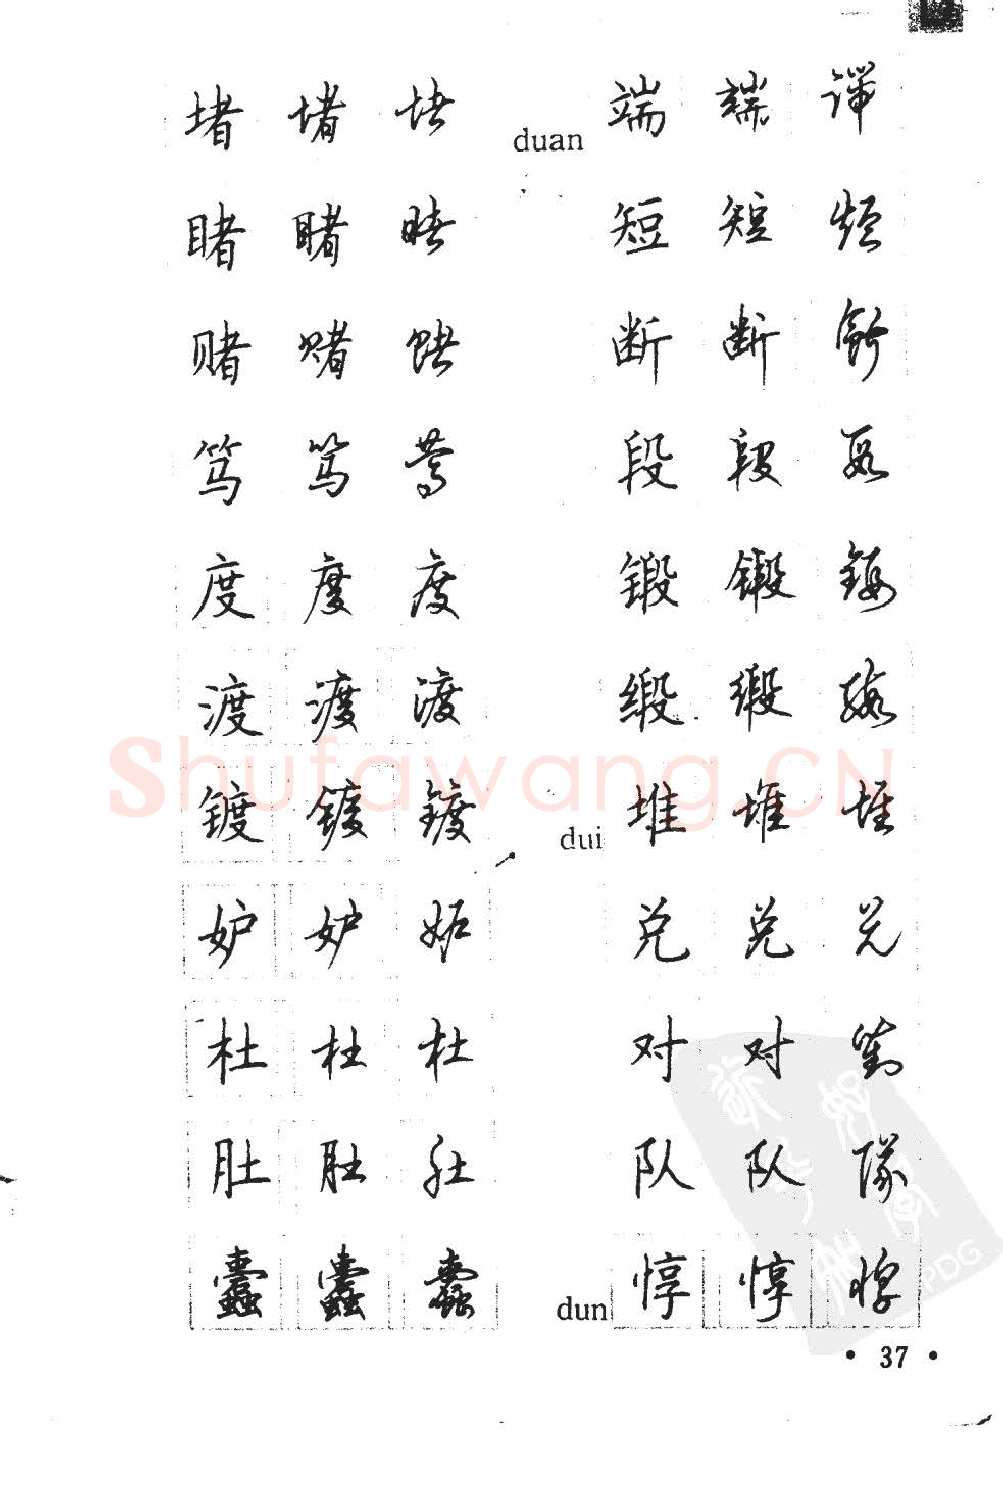 堵 堵 堵
睹 睹 睹
赌 赌 赌
笃 笃 笃
度 度 度
渡 渡 渡
镀 镀 镀
妒 妒 妒
杜 杜 杜
肚 肚 肚
蠹 蠹 蠹
duan 端 端 端
短 短 短
断 断 断
段 段 段
锻 锻 锻
缎 缎 缎
dui 堆 堆 堆
兑 兑 兑
对 对 對
队 队 隊
dun 惇 惇 惇
• 37 •
Shufawang.CN
PDG